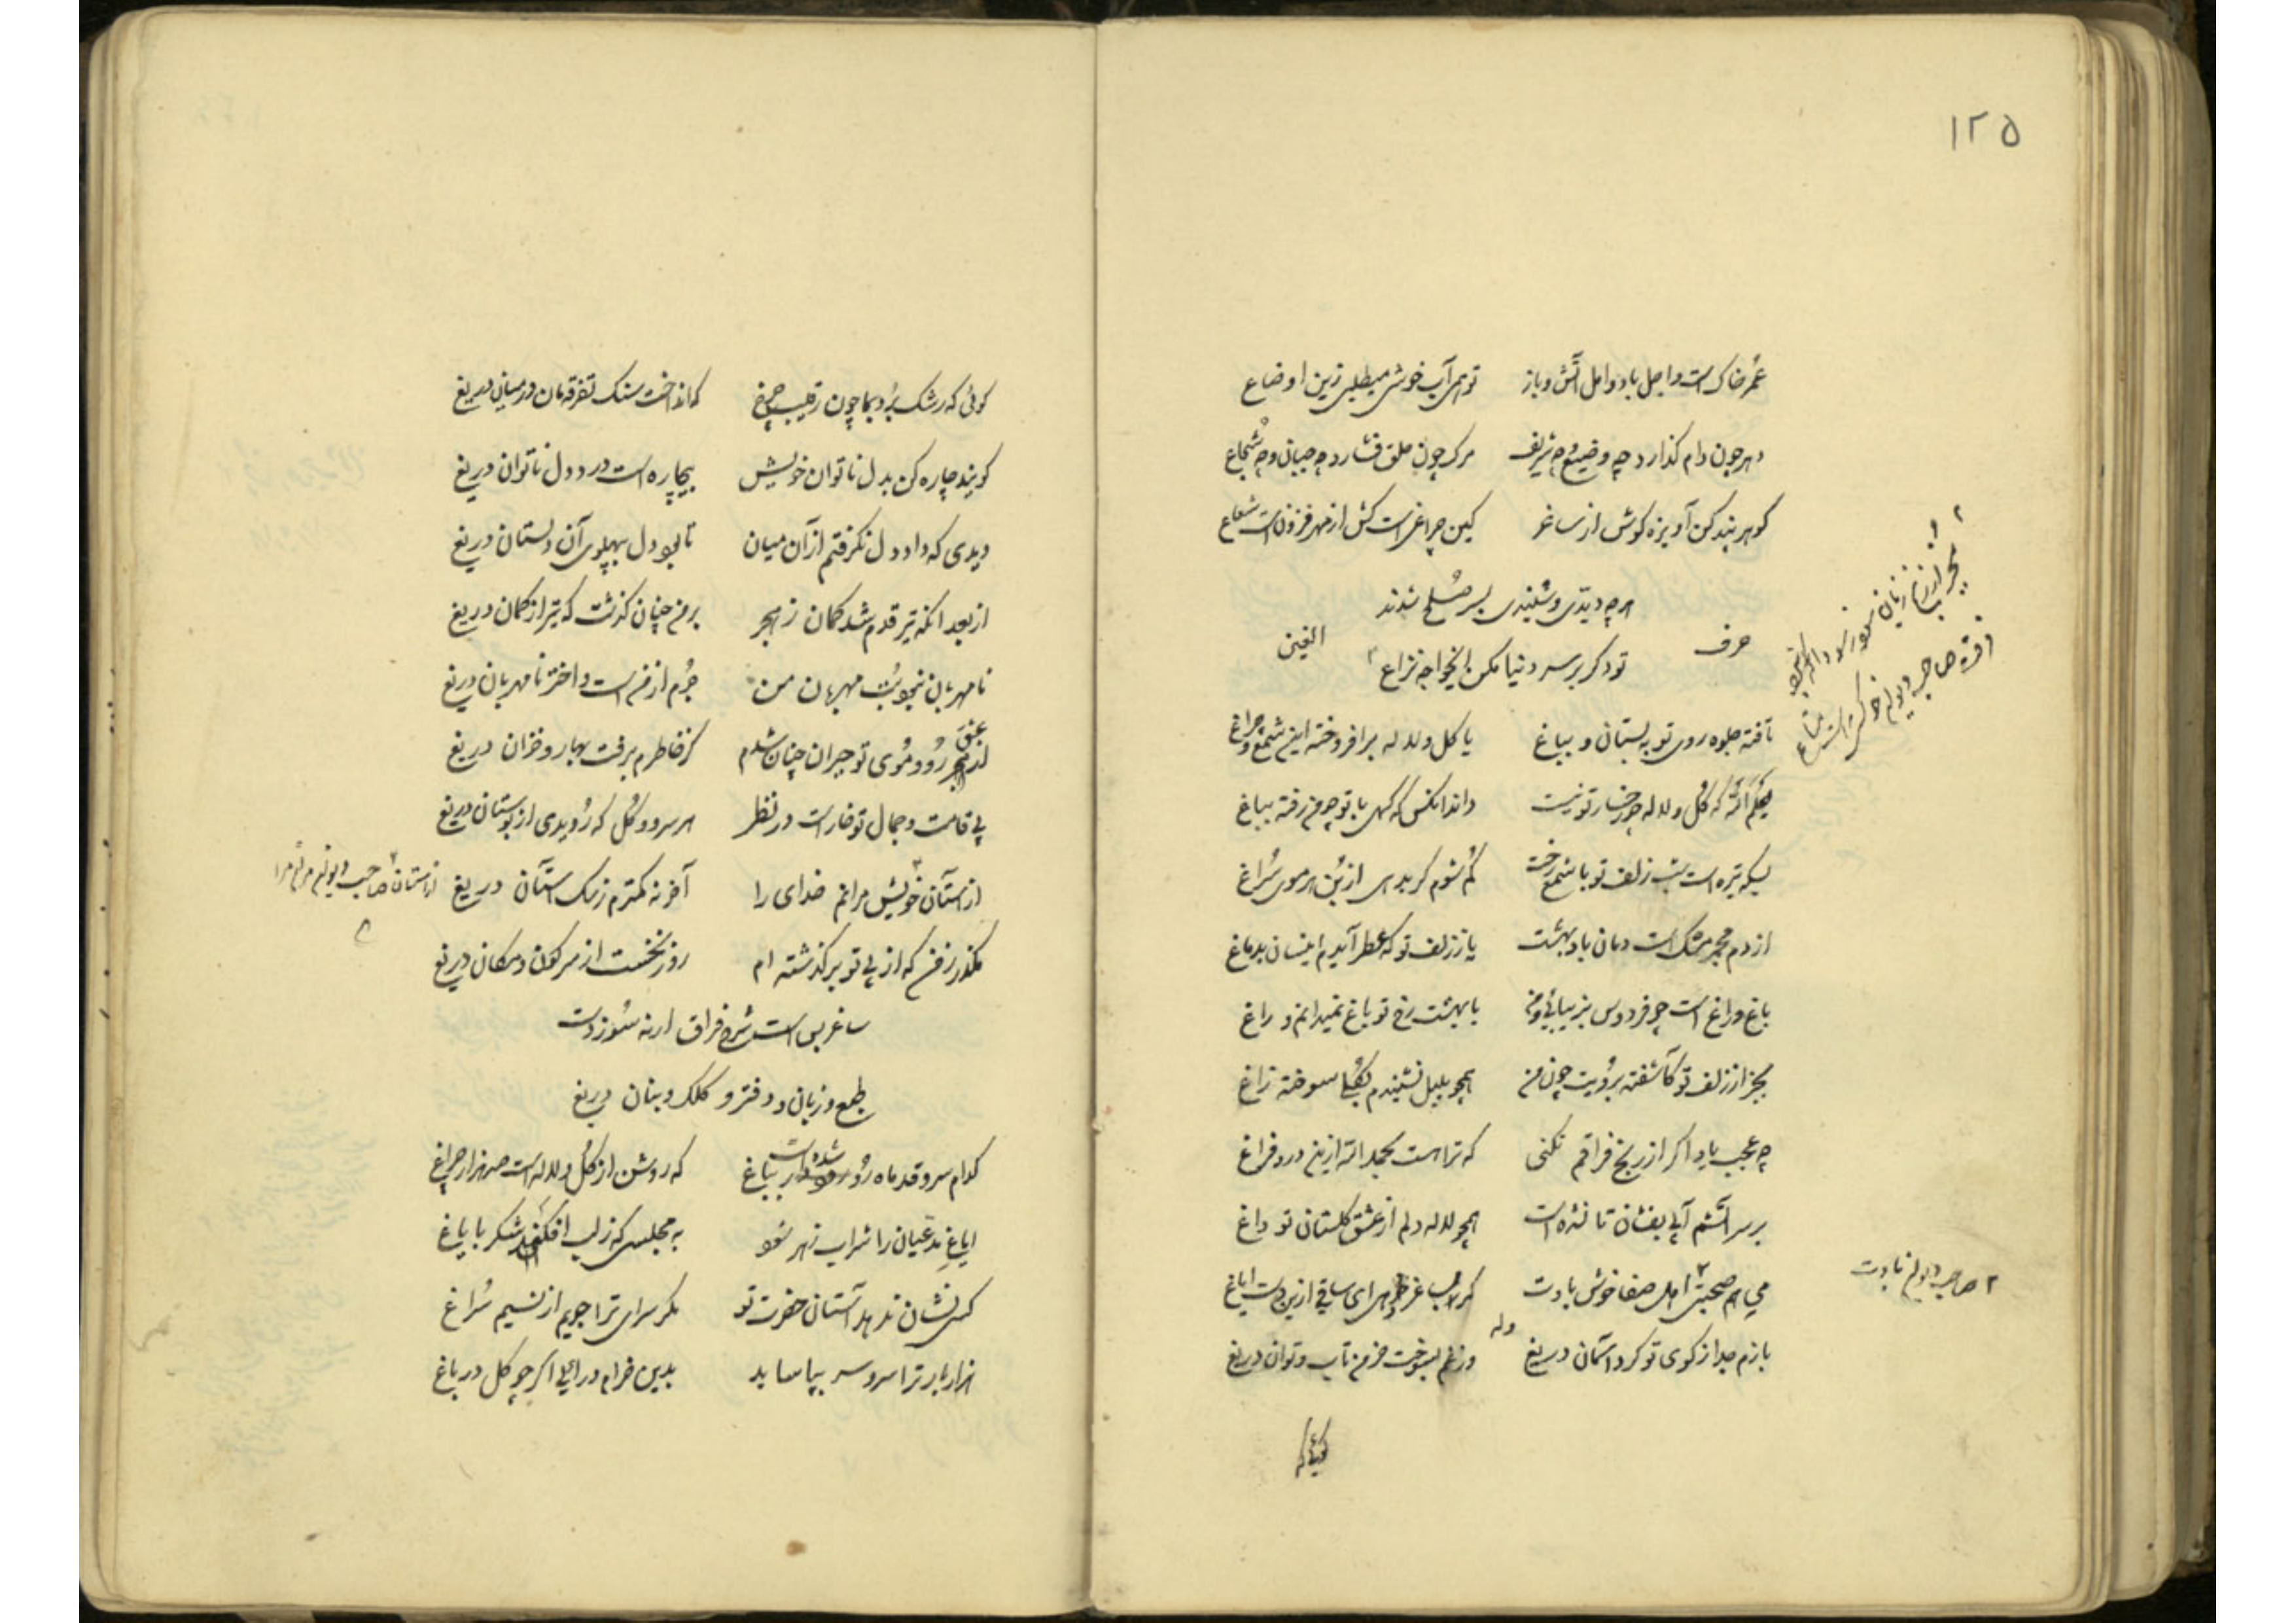 ۱۲۵
عمر خاک است و اجل باد و امل آتش و باز توهمی آب خوشی میطلبی زین اوضاع
دهر چون دام گذارد چه وضیع و چه شریف مرک چون حلق فشارد چه جبان و چه شجاع
گوهر پند کن آویزه کوش از ساغر کین چراغی است کش از مهر فزونست شعاع
هر چه دیدی و شنیدی بسر صلح شدند
حرف الغین
تو دکر بر سر دنیا مکن ایخواجه نزاع
تافته جلوه روی تو به بستان و بباغ یا کل و لاله برافروخته این شمع و چراغ
که کل و لاله چو رخسار تو نیست داند آنکس که گهی با تو چو من رفته بباغ
بسکه تیره است شب زلف تو با شمع رخت کم شوم کر بدهی از بن هر موی سراغ
از دم مجمر مشک است دمان باد بهشت یا ز زلف تو که عطر آیدم اینسان بدماغ
باغ و راغ است چو فردوس بزیبائی و من با بهشت رخ تو باغ نمیدانم و راغ
بجز از زلف تو کآشفته برویت چون من همچو بلبل نشنیدم بکل سوخته زاغ
چه عجب یاد اکر از رنج فراقم نکنی که ترا هست بحمدالله ازین درد فراغ
بر سر آتشم آبی بفشان تا نشده است همچو لاله دلم از عشق کلستان تو داغ
می هم صحبتی اهل صفا خوش بادت کر بساغر ندهی ای ساقی ازین دست ایاغ
۲ صاحب دیوانم نادت
وله
بازم جدا از کوی تو کرد آسمان دریغ وز غم بسوخت خرمن تاب و توان دریغ
کوئی که
کوئی که رشک برد بما چون رقیب چرخ کانداخت سنک تفرقه مان در میان دریغ
کویند چاره کن بدل ناتوان خویش بیچاره است درد دل ناتوان دریغ
دیدی که داد دل نکرفتم از آن میان تا بود دل بپهلوی آن دلستان دریغ
از بعد آنکه تیر قدم شد کمان ز هجر بر من چنان کذشت که تیر از کمان دریغ
نامهربان نبود بت مهربان من جرم از من است و اختر نامهربان دریغ
عشق
از هجر رو و موی تو حیران چنان شدم کز خاطرم برفت بهار و خزان دریغ
بی قامت و جمال تو خار است در نظر هر سرو و کل که روید از بوستان دریغ
از آستان خویش مرانم خدای را آخر نه کمترم ز سک آستان دریغ
از آستان صاحب دیوانم مران مرا
مکذر ز من که از پی تو بر کذشته ام روز نخست از سر کون و مکان دریغ
ساغر بس است شرح فراق ارنه سوزدت
طبع و زبان و دفتر و کلک و بنان دریغ
کدام سرو قد ماه رو شده است بباغ که روشن از کل و لاله است صد هزار چراغ
ایاغ مدعیان را شراب زهر شود به مجلسی که ز لب افکند شکر بایاغ
کسی نشان ندهد آستان حضرت تو مکر سرای ترا جویم از نسیم سراغ
هزار بار ترا سرو سر بپا ساید بدین خرام در آئی اکر چو کل در باغ